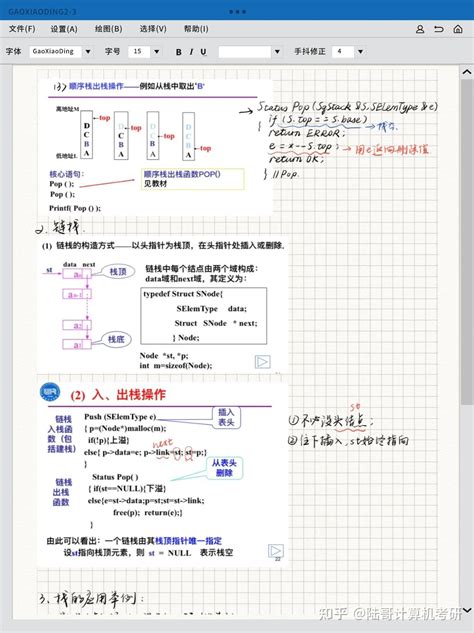 GAOXIAODING2-3
文件(F) 设置(A) 绘图(B) 选择(V) 帮助(I)
字体 GaoXiaoDing 字号 15 B I U 手抖修正 4
(3) 顺序栈出栈操作——例如从栈中取出“B'
高地址M
D
C
B
A
top
D
C
B
A
top
D
C
B
A
top
D
C
B
A
top
低地址L
核心语句: 顺序栈出栈函数POP()
Pop ( ); 见教材
Pop ( );
Printf( Pop () );
Status Pop (SqStack &S, SElemType &e)
{ if (S.top == S.base) → 栈空
return ERROR;
e = *--S.top; → 用e返回删除值
return OK;
} //Pop.
2. 链栈.
(1) 链栈的构造方式——以头指针为栈顶，在头指针处插入或删除.
data next
st
栈顶
栈底
链栈中每个结点由两个域构成：
data域和next域，其定义为：
typedef Struct SNode{
SElemType data;
Struct SNode * next;
} Node;
Node *st, *p;
int m=sizeof(Node);
(2) 入、出栈操作
链栈入栈函数（包括建栈）
Push (SElemType e)
{ p=(Node*)malloc(m);
if(!p){上溢}
next
else{ p->data=e; p->link=st; st=p;}
}
插入表头
链栈出栈函数
Status Pop( )
{ if(st==NULL){下溢}
else{e=st->data;p=st;st=st->link;
free(p); return(e);}
}
从表头删除
由此可以看出：一个链栈由其栈顶指针唯一指定
设st指向栈顶元素，则 st = NULL 表示栈空
22
st
① 不必设头结点；
② 往下插入，st始终指向
3、栈的应用举例：
知乎 @陆哥计算机考研